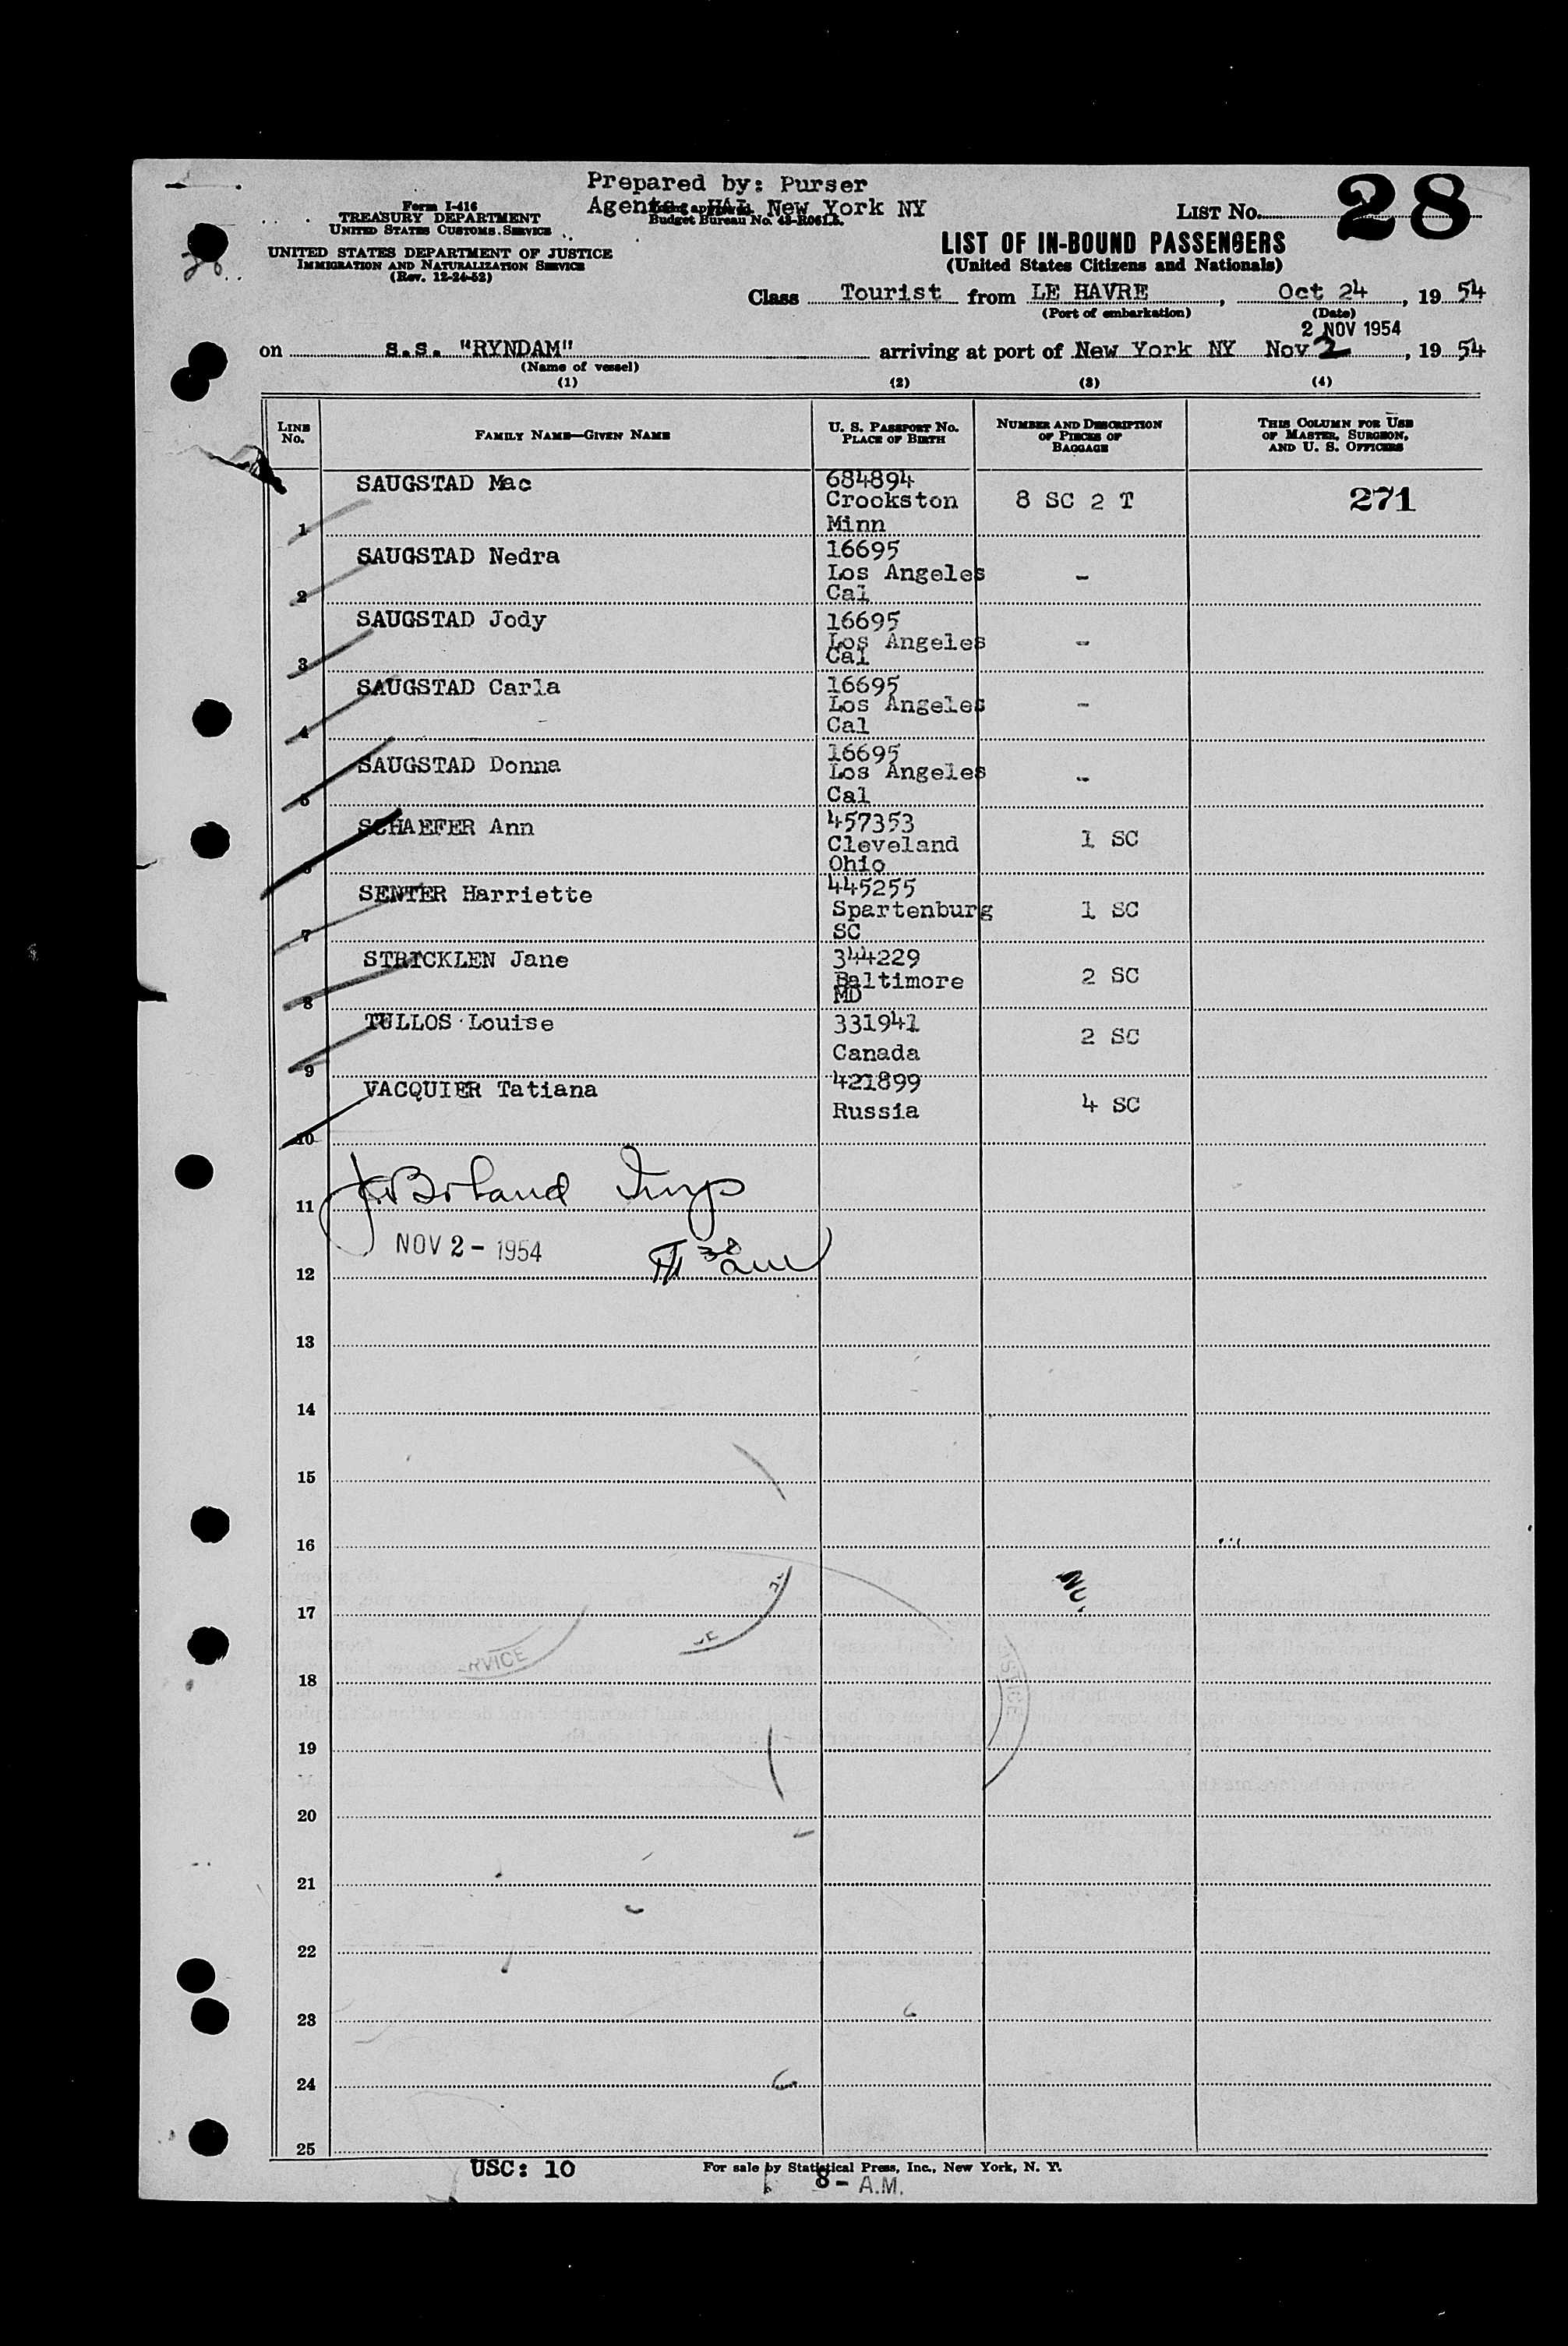 Prepared by: Purser
Agents HAL New York NY
Budget Bureau No. 43-R061.3.
Form I-416
TREASURY DEPARTMENT
UNITED STATES CUSTOMS SERVICE
UNITED STATES DEPARTMENT OF JUSTICE
IMMIGRATION AND NATURALIZATION SERVICE
(Rev. 12-24-52)
LIST No. 28
LIST OF IN-BOUND PASSENGERS
(United States Citizens and Nationals)
Class Tourist from LE HAVRE, Oct 24, 19 54
(Port of embarkation) (Date)
2 NOV 1954
on s.s. "RYNDAM" arriving at port of New York NY Nov 2, 19 54
(Name of vessel)
(1) (2) (3) (4)
LINE No. FAMILY NAME—GIVEN NAME U. S. PASSPORT No. PLACE OF BIRTH NUMBER AND DESCRIPTION OF PIECES OF BAGGAGE THIS COLUMN FOR USE OF MASTER, SURGEON, AND U. S. OFFICERS
1 SAUGSTAD Mac 684894 Crookston Minn 8 SC 2 T 271
2 SAUGSTAD Nedra 16695 Los Angeles Cal -
3 SAUGSTAD Jody 16695 Los Angeles Cal -
4 SAUGSTAD Carla 16695 Los Angeles Cal -
5 SAUGSTAD Donna 16695 Los Angeles Cal -
6 SCHAEFER Ann 457353 Cleveland Ohio 1 SC
7 SENTER Harriette 445255 Spartenburg SC 1 SC
8 STRICKLEN Jane 344229 Baltimore MD 2 SC
9 TULLOS Louise 331941 Canada 2 SC
10 VACQUIER Tatiana 421899 Russia 4 SC
11
NOV 2 - 1954
12
13
14
15
16
17
18
19
20
21
22
23
24
25
USC: 10
For sale by Statistical Press, Inc., New York, N. Y.
8 - A.M.